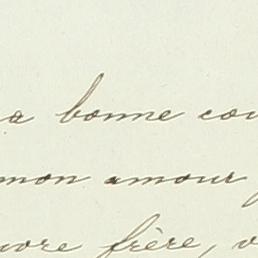 a bonne cou
mon amour
uvre frère, v